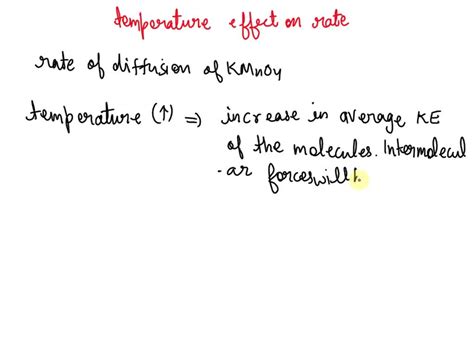 temperature effect on rate
rate of diffusion of KMnO4
temperature (↑) ⇒ increase in average KE
of the molecules. Intermolecul
-ar forces will